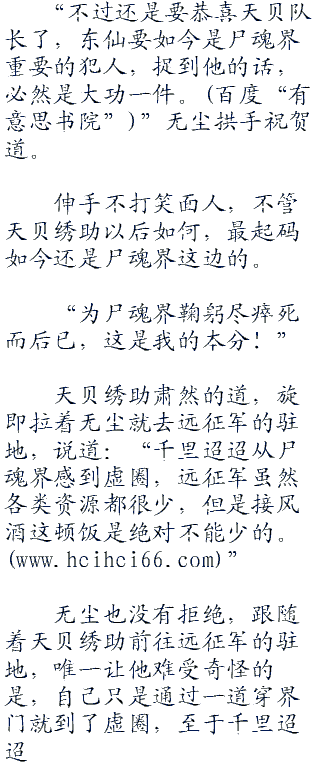 “不过还是要恭喜天贝队
长了，东仙要如今是尸魂界
重要的犯人，捉到他的话，
必然是大功一件。(百度“有
意思书院”)”无尘拱手祝贺
道。
伸手不打笑面人，不管
天贝绣助以后如何，最起码
如今还是尸魂界这边的。
“为尸魂界鞠躬尽瘁死
而后已，这是我的本分！”
天贝绣助肃然的道，旋
即拉着无尘就去远征军的驻
地，说道：“千里迢迢从尸
魂界感到虚圈，远征军虽然
各类资源都很少，但是接风
酒这顿饭是绝对不能少的。
(www.hcihci66.com)”
无尘也没有拒绝，跟随
着天贝绣助前往远征军的驻
地，唯一让他难受奇怪的
是，自己只是通过一道穿界
门就到了虚圈，至于千里迢
迢